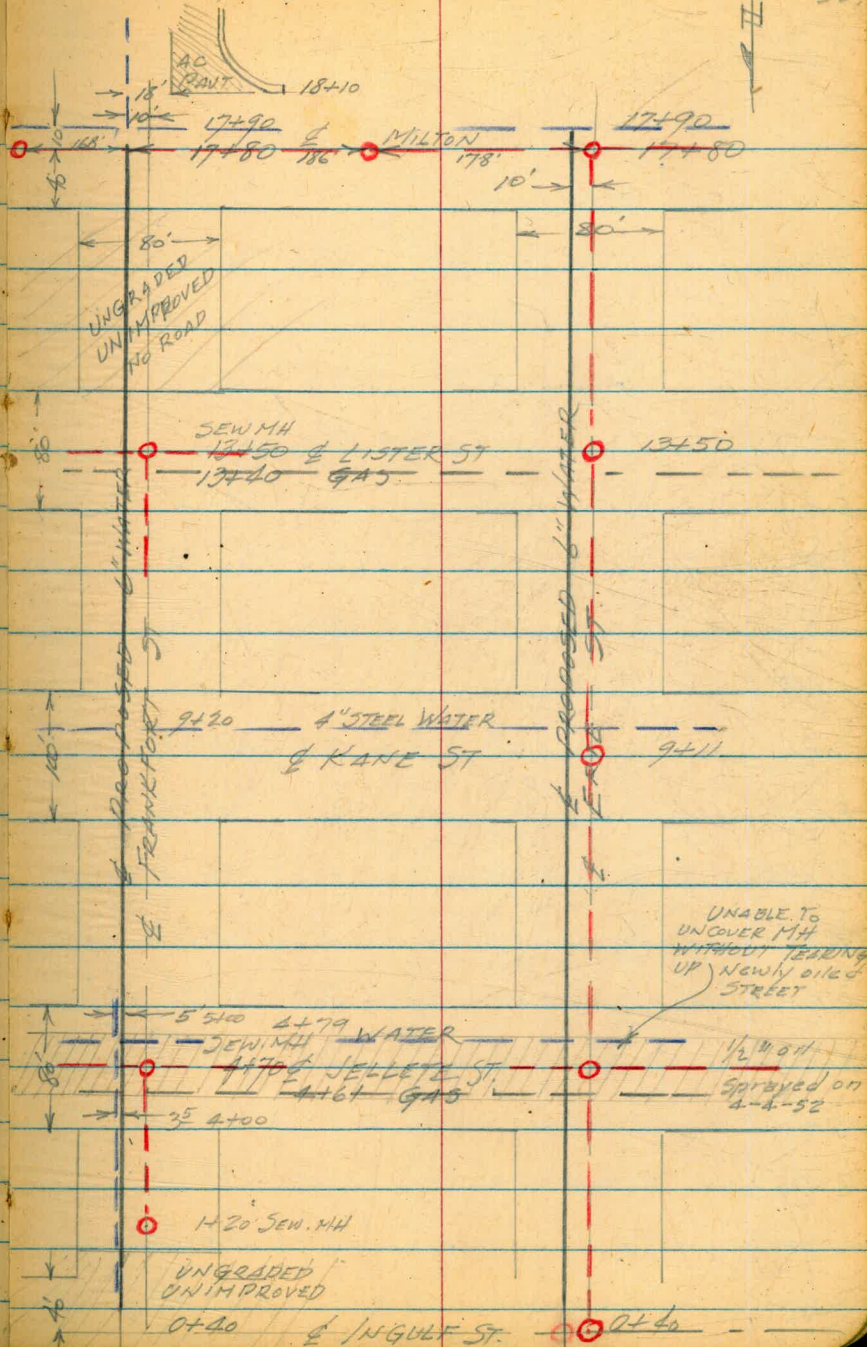 AC
PAVT.
18+10
18'
10'
17+90
17+90
10'
168'
17+80
℄
MILTON
186'
178'
17+80
40'
10'
80'
80'
UNGRADED
UNIMPROVED
NO ROAD
SEW MH
13+50 ℄ LISTER ST
13+50
13+40 GAS
80'
℄ PROPOSED 6" WATER
℄ FRANKFORT ST
℄ PROPOSED 6" WATER
℄ ERIE ST.
9+20 4" STEEL WATER
℄ KANE ST
9+11
100'
UNABLE TO
UNCOVER MH
WITHOUT TEARING
UP NEWLY oiled
STREET
5' 5+00
4+79 WATER
SEW MH
4+70 ℄ JELLETE ST.
4+61 GAS
80'
1/2" oil
sprayed on
4-4-52
35 4+00
1+20 SEW. MH
UNGRADED
UNIMPROVED
40'
0+40 ℄ INGULF ST.
0+40